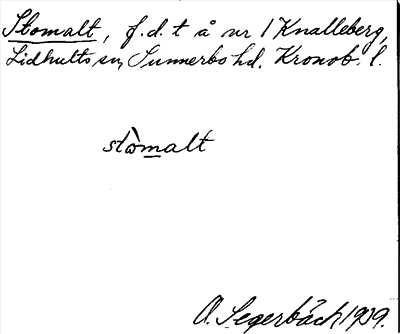 Stomalt, f.d.t å nr 1 Knalleberg,
Lidhults sn, Sunnerbo hd. Kronob. l.
stòmalt
A. Segerbäck 1939.